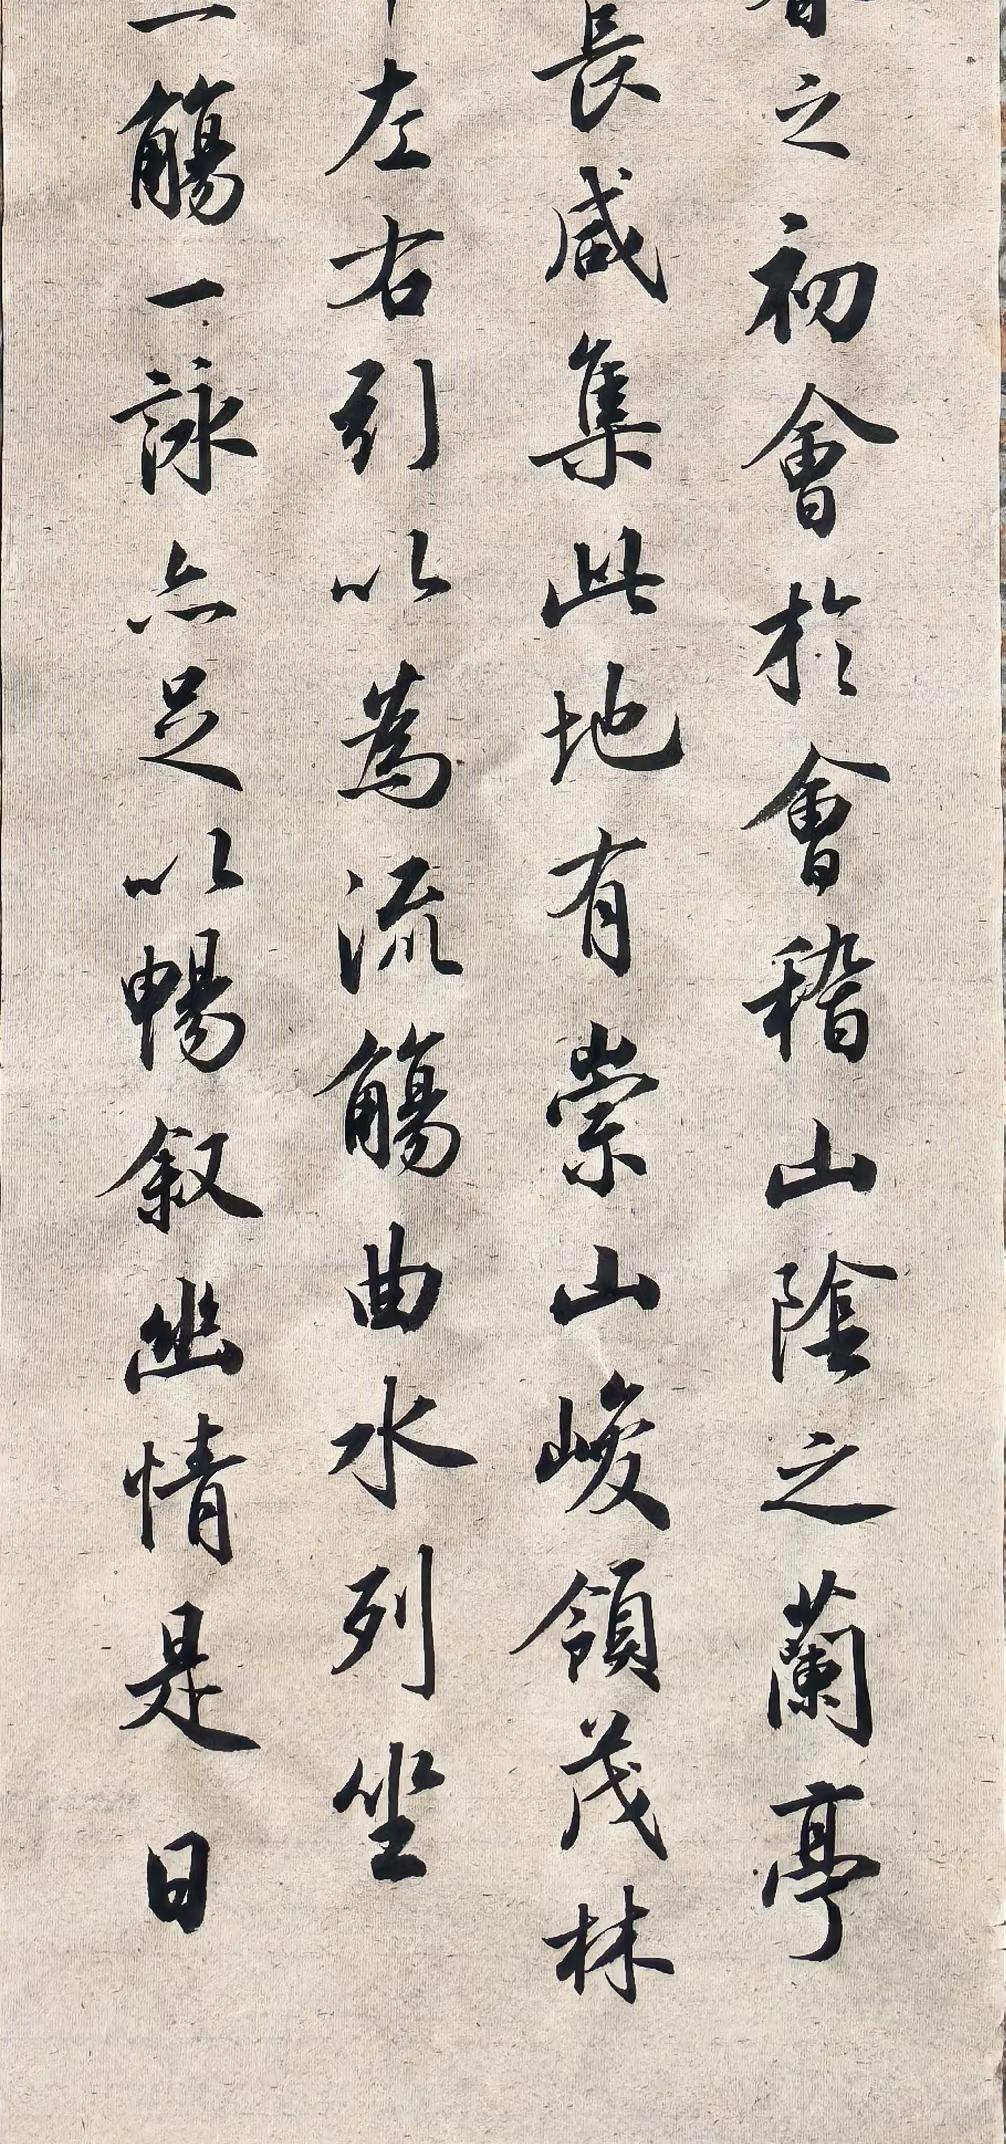 之初會於會稽山陰之蘭亭
長咸集此地有崇山峻領茂林
左右引以為流觴曲水列坐
一觴一詠亦足以暢敘幽情是日